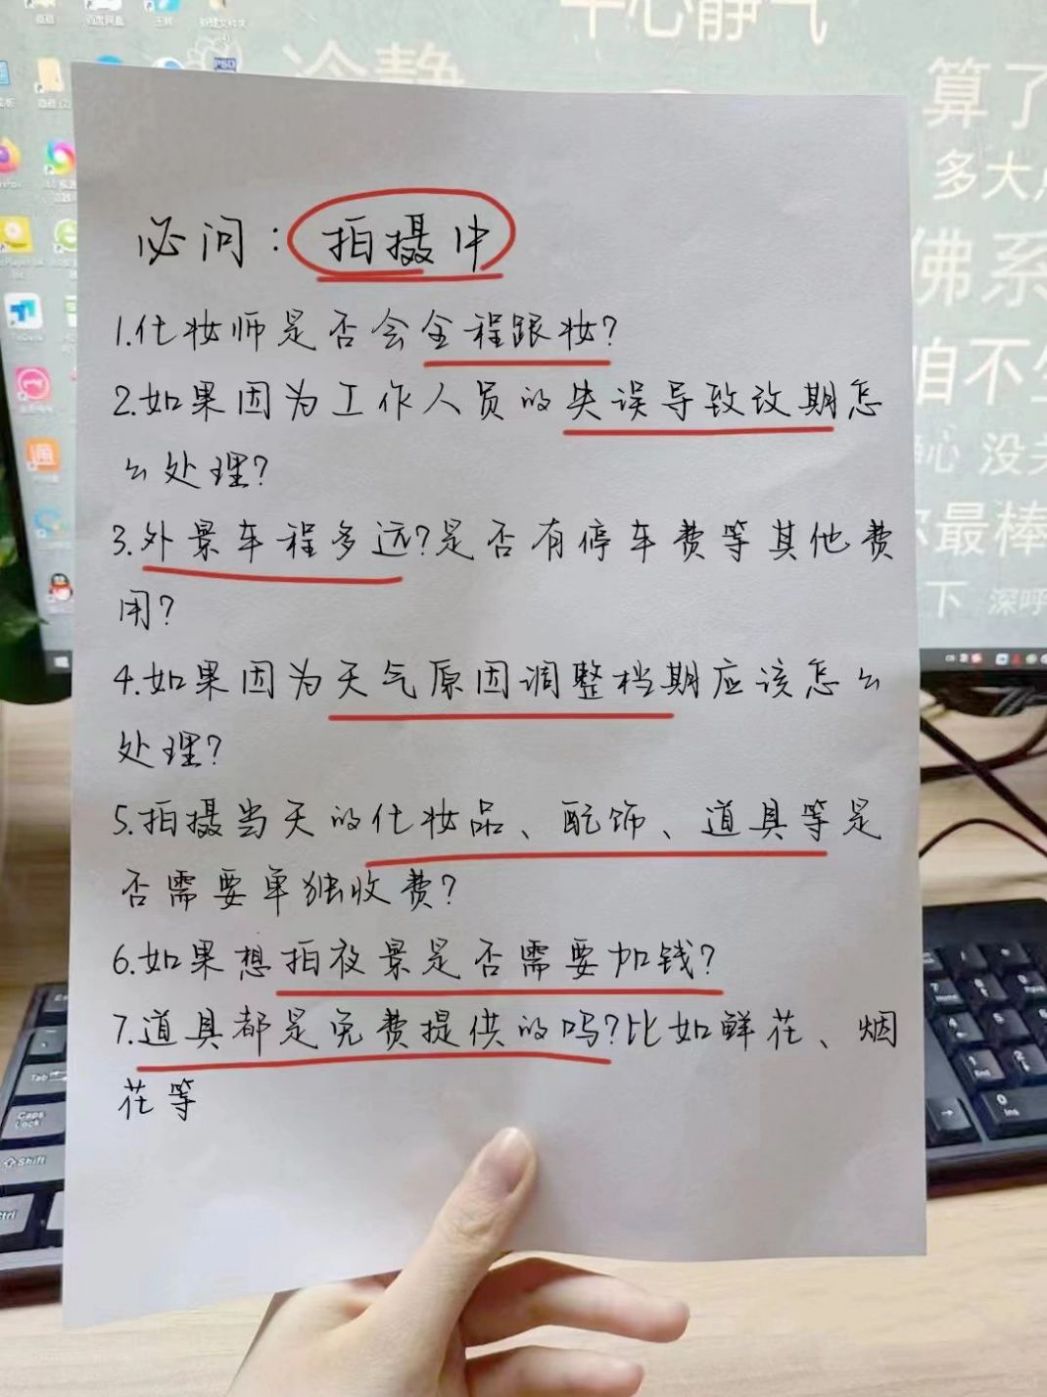 平心静气
冷静
算了
多大
佛系
咱不
没
最棒
下 深呼
必问：拍摄中
1.化妆师是否会全程跟妆?
2.如果因为工作人员的失误导致改期怎
么处理?
3.外景车程多远?是否有停车费等其他费
用?
4.如果因为天气原因调整档期应该怎么
处理?
5.拍摄当天的化妆品、配饰、道具等是
否需要单独收费?
6.如果想拍夜景是否需要加钱?
7.道具都是免费提供的吗?比如鲜花、烟
花等
Tab
Caps
Lock
Shift